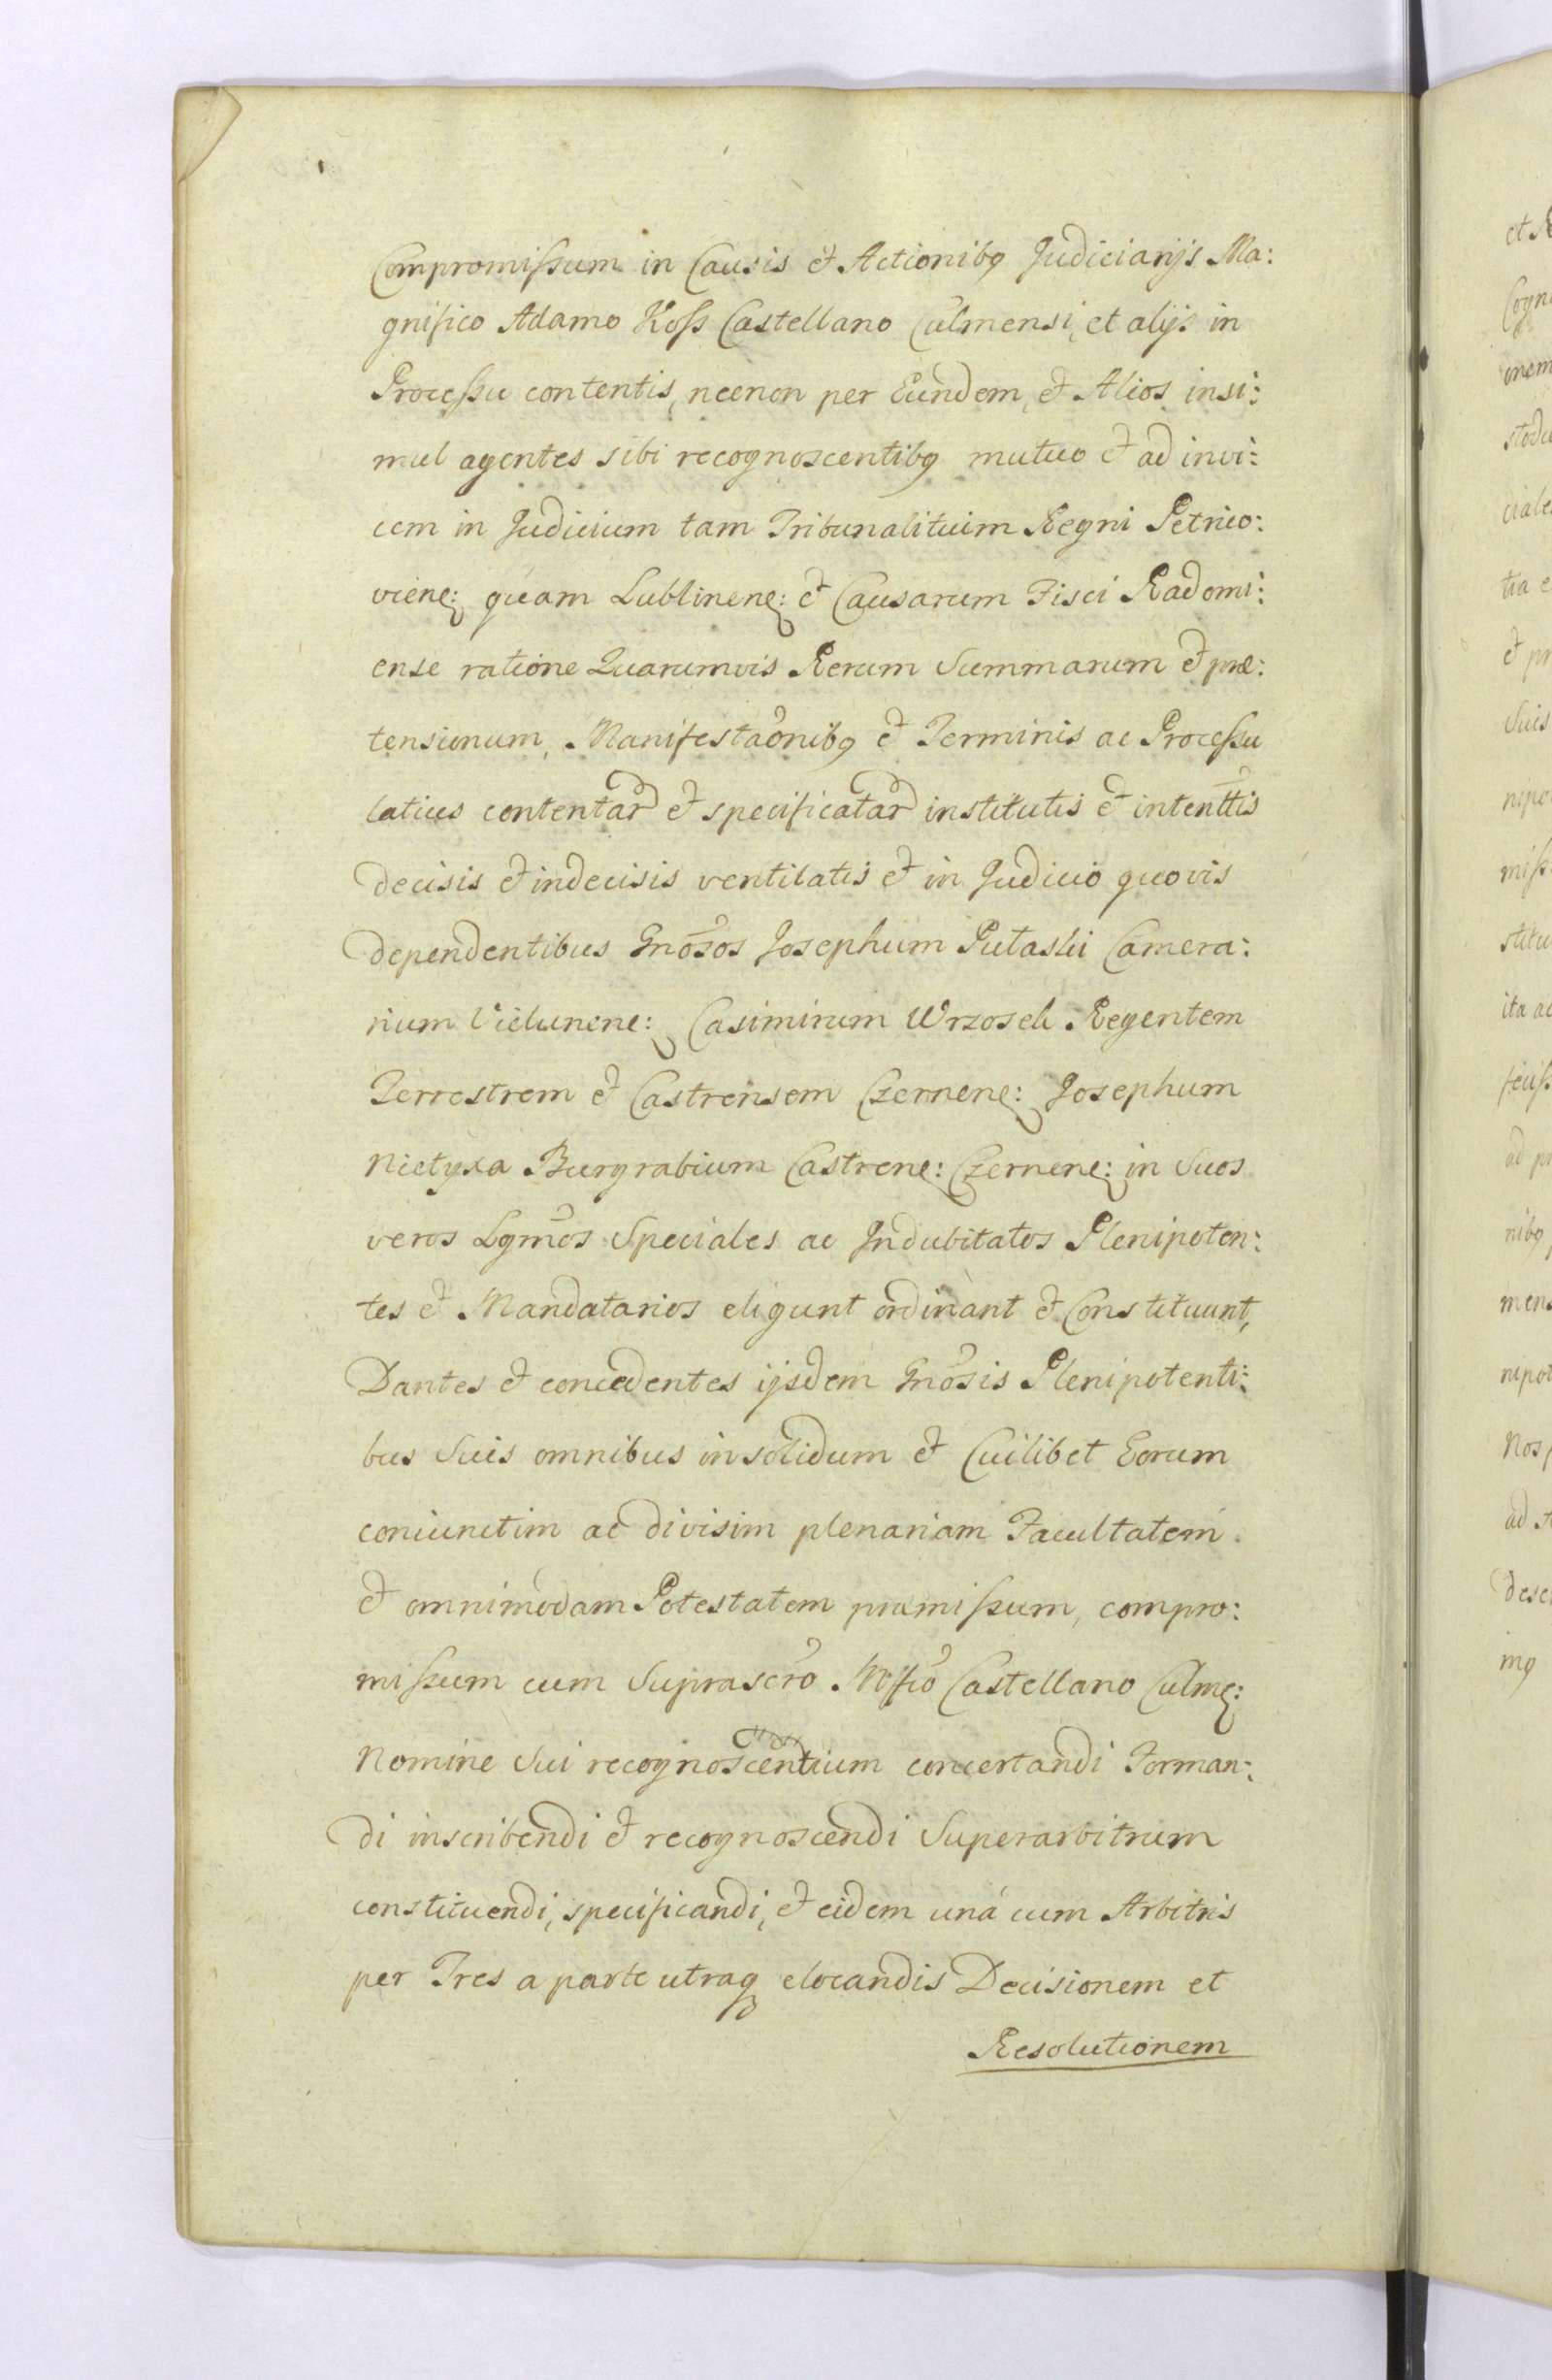 Compromissum in Causis et Actionibq Judiciarijs Ma:
gnifico Adamo Koss Castellano Culmensi, et alijs in
Processu contentis, necnon per Eundem, et Alios insi:
mul agentes sibi recognoscentibq mutuo et ad invi:
cem in Judicium tam Tribunalituim Regni Petrico:
viene: quam Lublinene: et Causarum Fisci Radomi:
ense ratione Quarumvis Rerum Summarum et præ:
tensionum, Manifestaõnibq et Terminis ac Processu
latius contentar et specificatar institutis et intenttis
decisis et indecisis ventilatis et in Judicio quovis
dependentibus Gnõsos Josephum Putaski Camera:
rium Vielunene: Casimirum Wrzosek Regentem
Terrestrem et Castrensem Czernene: Josephum
Nietyxa Burgrabium Castrene: Czernene: in Suos
veros Lgmõs Speciales ac Indubitatos Plenipoten:
tes et Mandatarios eligunt ordinant et Constituunt,
Dantes et concedentes ijsdem Gnõsis Plenipotenti:
bus Suis omnibus in solidum et Cuilibet Eorum
coniunctim ac divisim plenariam Facultatem
et omnimodam Potestatem præmissum, compro:
missum cum Suprascrõ Mfico Castellano Culme:
Nomine Sui recognoscentium concertandi Forman:
di inscribendi et recognoscendi Superarbitrum
constituendi, specificandi, et eidem unà cum Arbitris
per Tres a parte utraq elocandis Decisionem et
Resolutionem